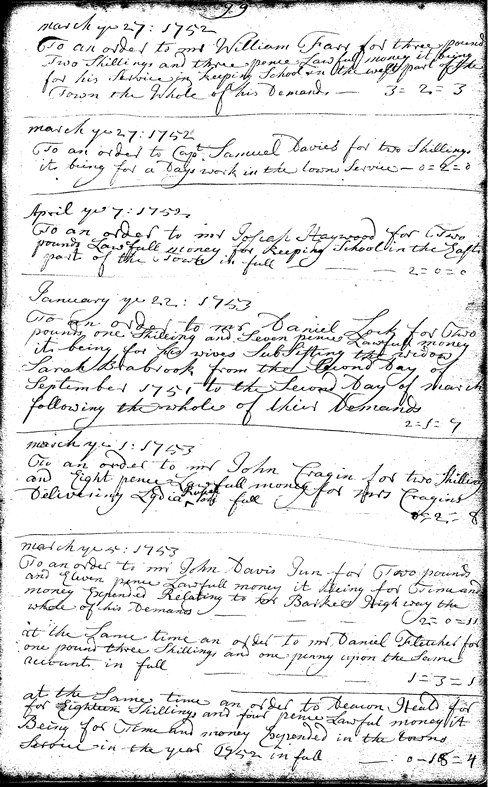 99
march ye 27: 1752
To an order to mr William Farr for three pound
Two Shillings and three pence Lawfull money it being
for his Service in keeping School in the west part of the
Town the Whole of his Demands — 3=2=3
march ye 27: 1752
To an order to Capt. Samuel Davies for two Shillings
it being for a Days work in the towns Service — 0=2=0
April ye 7: 1752
To an order to mr Josiah Haywood for Two
pounds Lawfull money for keeping School in the East
part of the Town in full — — 2=0=0
January ye 22: 1753
To an order to mr Daniel Lock for Two
pounds one Shilling and Seven pence Lawfull money
it being for his wives Subsisting the widow
Sarah Brabrook from the Second Day of
September 1751 to the Second Day of march
following the whole of their Demands
2=1=7
march ye 1: 1753
To an order to mr John Cragin for two Shilling
and Eight pence Lawfull money for mrs Cragins
Delivering Lydia in full
0=2=8
march ye 5: 1753
To an order to mr John Davis Jun for Two pounds
and Eleven pence Lawfull money it being for Time and
money Expended Relating to Barkes High way the
whole of his Demands — — 2=0=11
at the Same time an order to mr Daniel Fletcher for
one pound three Shillings and one penny upon the Same
accounts in full — — 1=3=1
at the Same time an order to Deacon Heald for
for Eighteen Shillings and four pence Lawful money it
Being for Time and money Expended in the towns
Service in the year 1752 in full — : 0—18=4